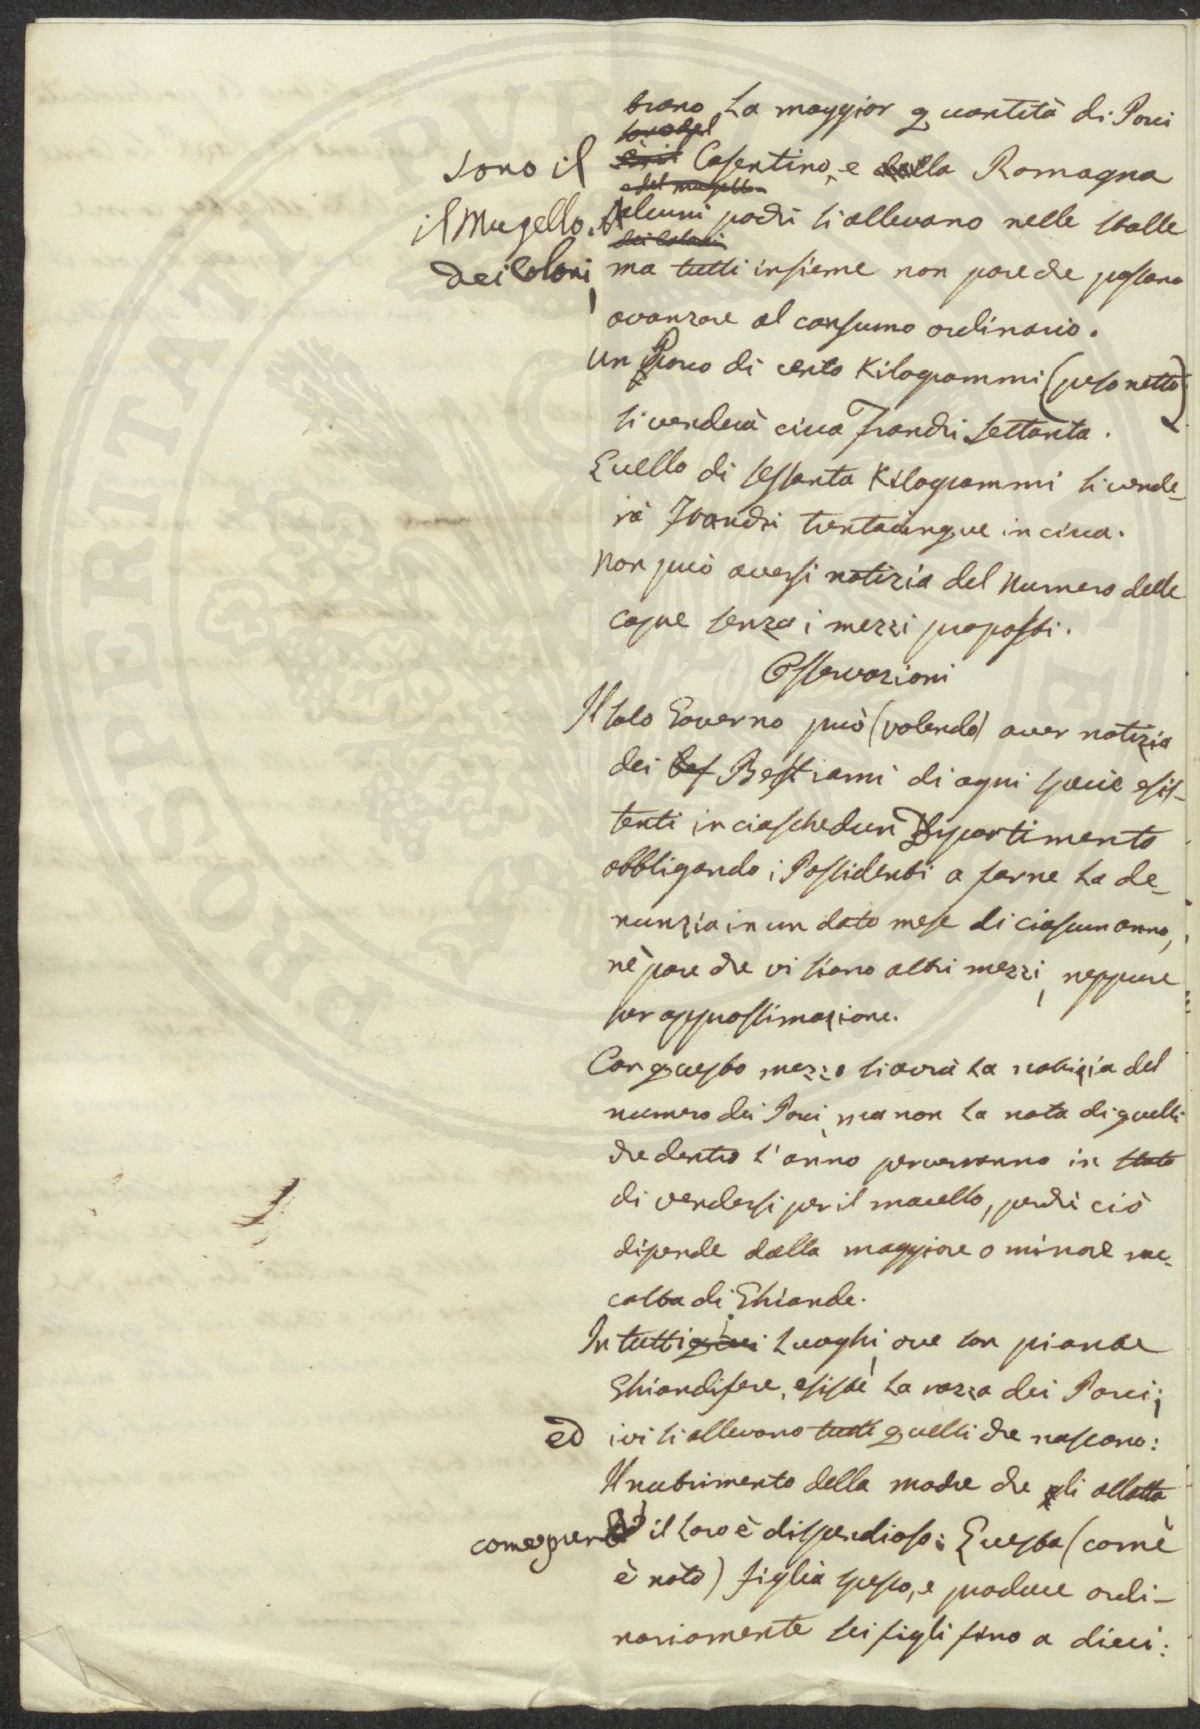 brano la maggior quantità di Porci
sono del
sono il
è il Casentino, e della Romagna
e del mugello
il Mugello. Alcuni pochi si allevano nelle stalle
dei Coloni
dei Coloni, ma tutti insieme non pare che possano
avanzare al consumo ordinario.
Un Porco di cento Kilogrammi (peso netto)
si venderà circa Franchi settanta.
Quello di sessanta Kilogrammi si vende-
rà Franchi trentacinque in circa.
Non può aversi notizia del Numero delle
capre senza i mezzi proposti.
Osservazioni
Il solo Governo può (volendo) aver notizia
dei Bes Bestiami di ogni specie esis-
tenti in ciaschedun Dipartimento
obbligando i Possidenti a farne la de-
nunzia in un dato mese di ciascun anno,
nè pare che vi siano altri mezzi, neppure
per approssimazione.
Con questo mezzo si avrà la notizia del
numero dei Porci, ma non la nota di quelli
che dentro l'anno perverranno in stato
di vendersi per il macello, perchè ciò
dipende dalla maggiore o minore rac-
colta di Ghiande.
In tutti quei i Luoghi, ove son piante
Ghiandifere, esiste la razza dei Porci;
ed ivi si allevano tutti quelli che nascono:
Il nutrimento della madre che gli allatta
come pure il loro è dispendioso: Questa (come
è noto) figlia spesso, e produce ordi-
nariamente sei figli fino a dieci: